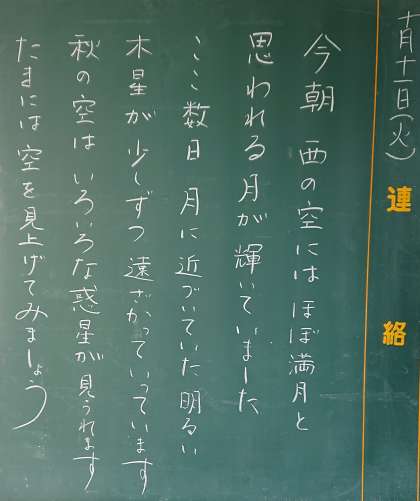 十月十一日(火)
連絡
今朝 西の空には ほぼ満月と
思われる月が輝いていました
ここ数日 月に近づいていた明るい
木星が少しずつ遠ざかっていっています
秋の空はいろいろな惑星が見られます
たまには空を見上げてみましょう